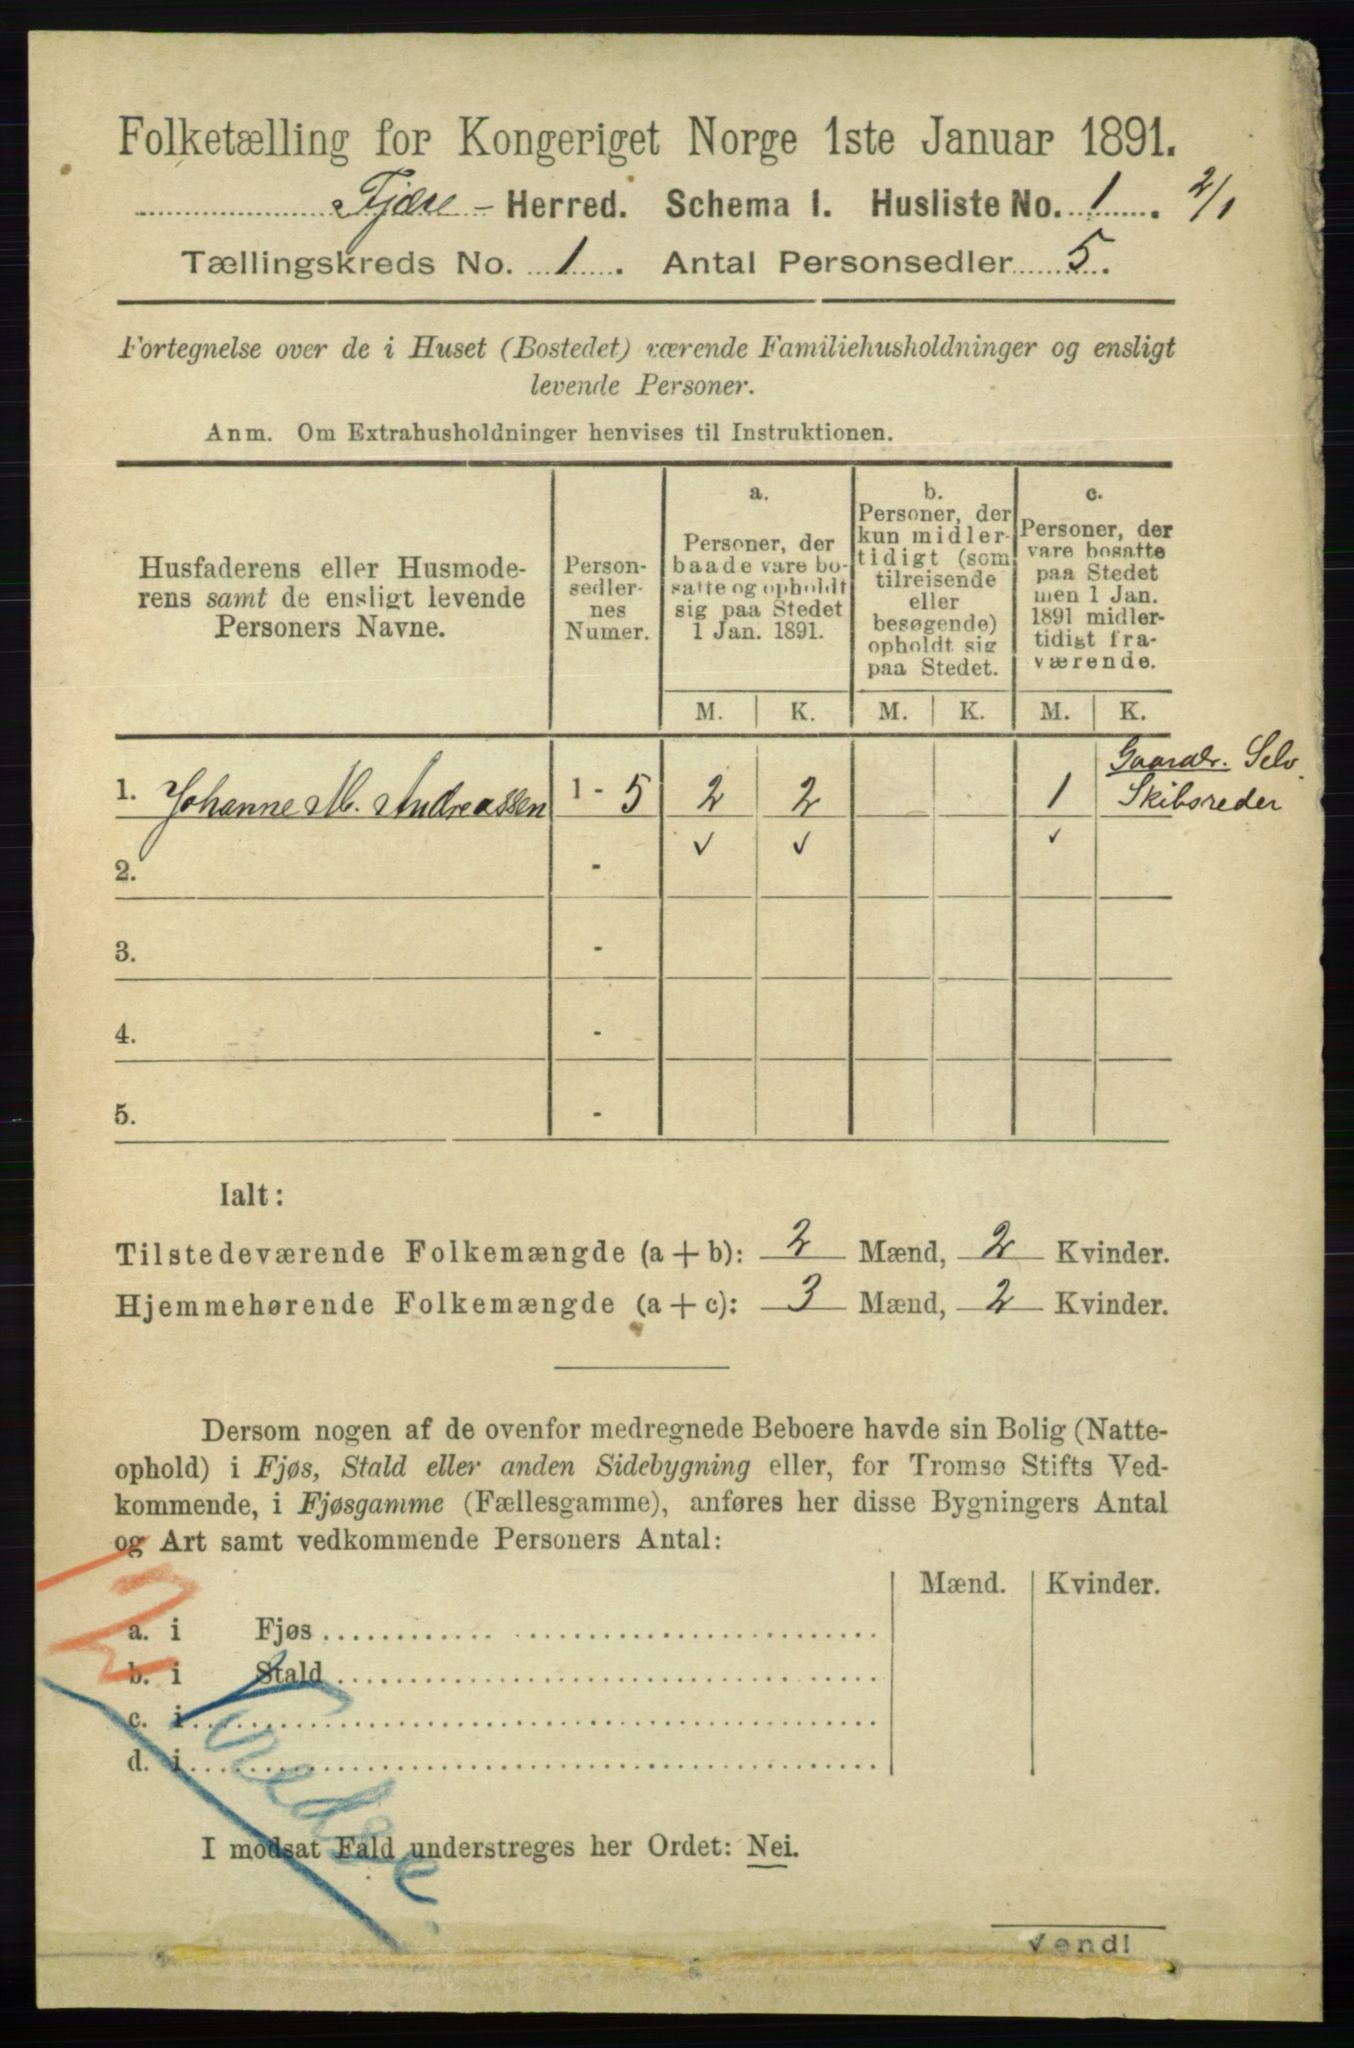 Folketælling for Kongeriget Norge 1ste Januar 1891.
Fjære - Herred. Schema I. Husliste No. 1. 2/1
Tællingskreds No. 1. Antal Personsedler 5.
Fortegnelse over de i Huset (Bostedet) værende Familiehusholdninger og ensligt
levende Personer.
Anm. Om Extrahusholdninger henvises til Instruktionen.
Husfaderens eller Husmode-
rens samt de ensligt levende
Personers Navne.
Person-
sedler-
nes
Numer.
a.
Personer, der
baade vare bo-
satte og opholdt
sig paa Stedet
1 Jan. 1891.
b.
Personer, der
kun midler-
tidigt (som
tilreisende
eller
besøgende)
opholdt sig
paa Stedet.
c.
Personer, der
vare bosatte
paa Stedet
men 1 Jan.
1891 midler-
tidigt fra-
værende.
M. K. M. K. M. K.
1. Johanne M. Andreassen 1 - 5 2 2 1 Gaardbr. Selv.
Skibsreder
✓ ✓ ✓
2. -
3. -
4. -
5. -
Ialt:
Tilstedeværende Folkemængde (a + b): 2 Mænd, 2 Kvinder.
Hjemmehørende Folkemængde (a + c): 3 Mænd, 2 Kvinder.
Dersom nogen af de ovenfor medregnede Beboere havde sin Bolig (Natte-
ophold) i Fjøs, Stald eller anden Sidebygning eller, for Tromsø Stifts Ved-
kommende, i Fjøsgamme (Fællesgamme), anføres her disse Bygningers Antal
og Art samt vedkommende Personers Antal:
Mænd. Kvinder.
a. i Fjøs
b. i Stald
c. i
d. i
I modsat Fald understreges her Ordet: Nei.
Vend!